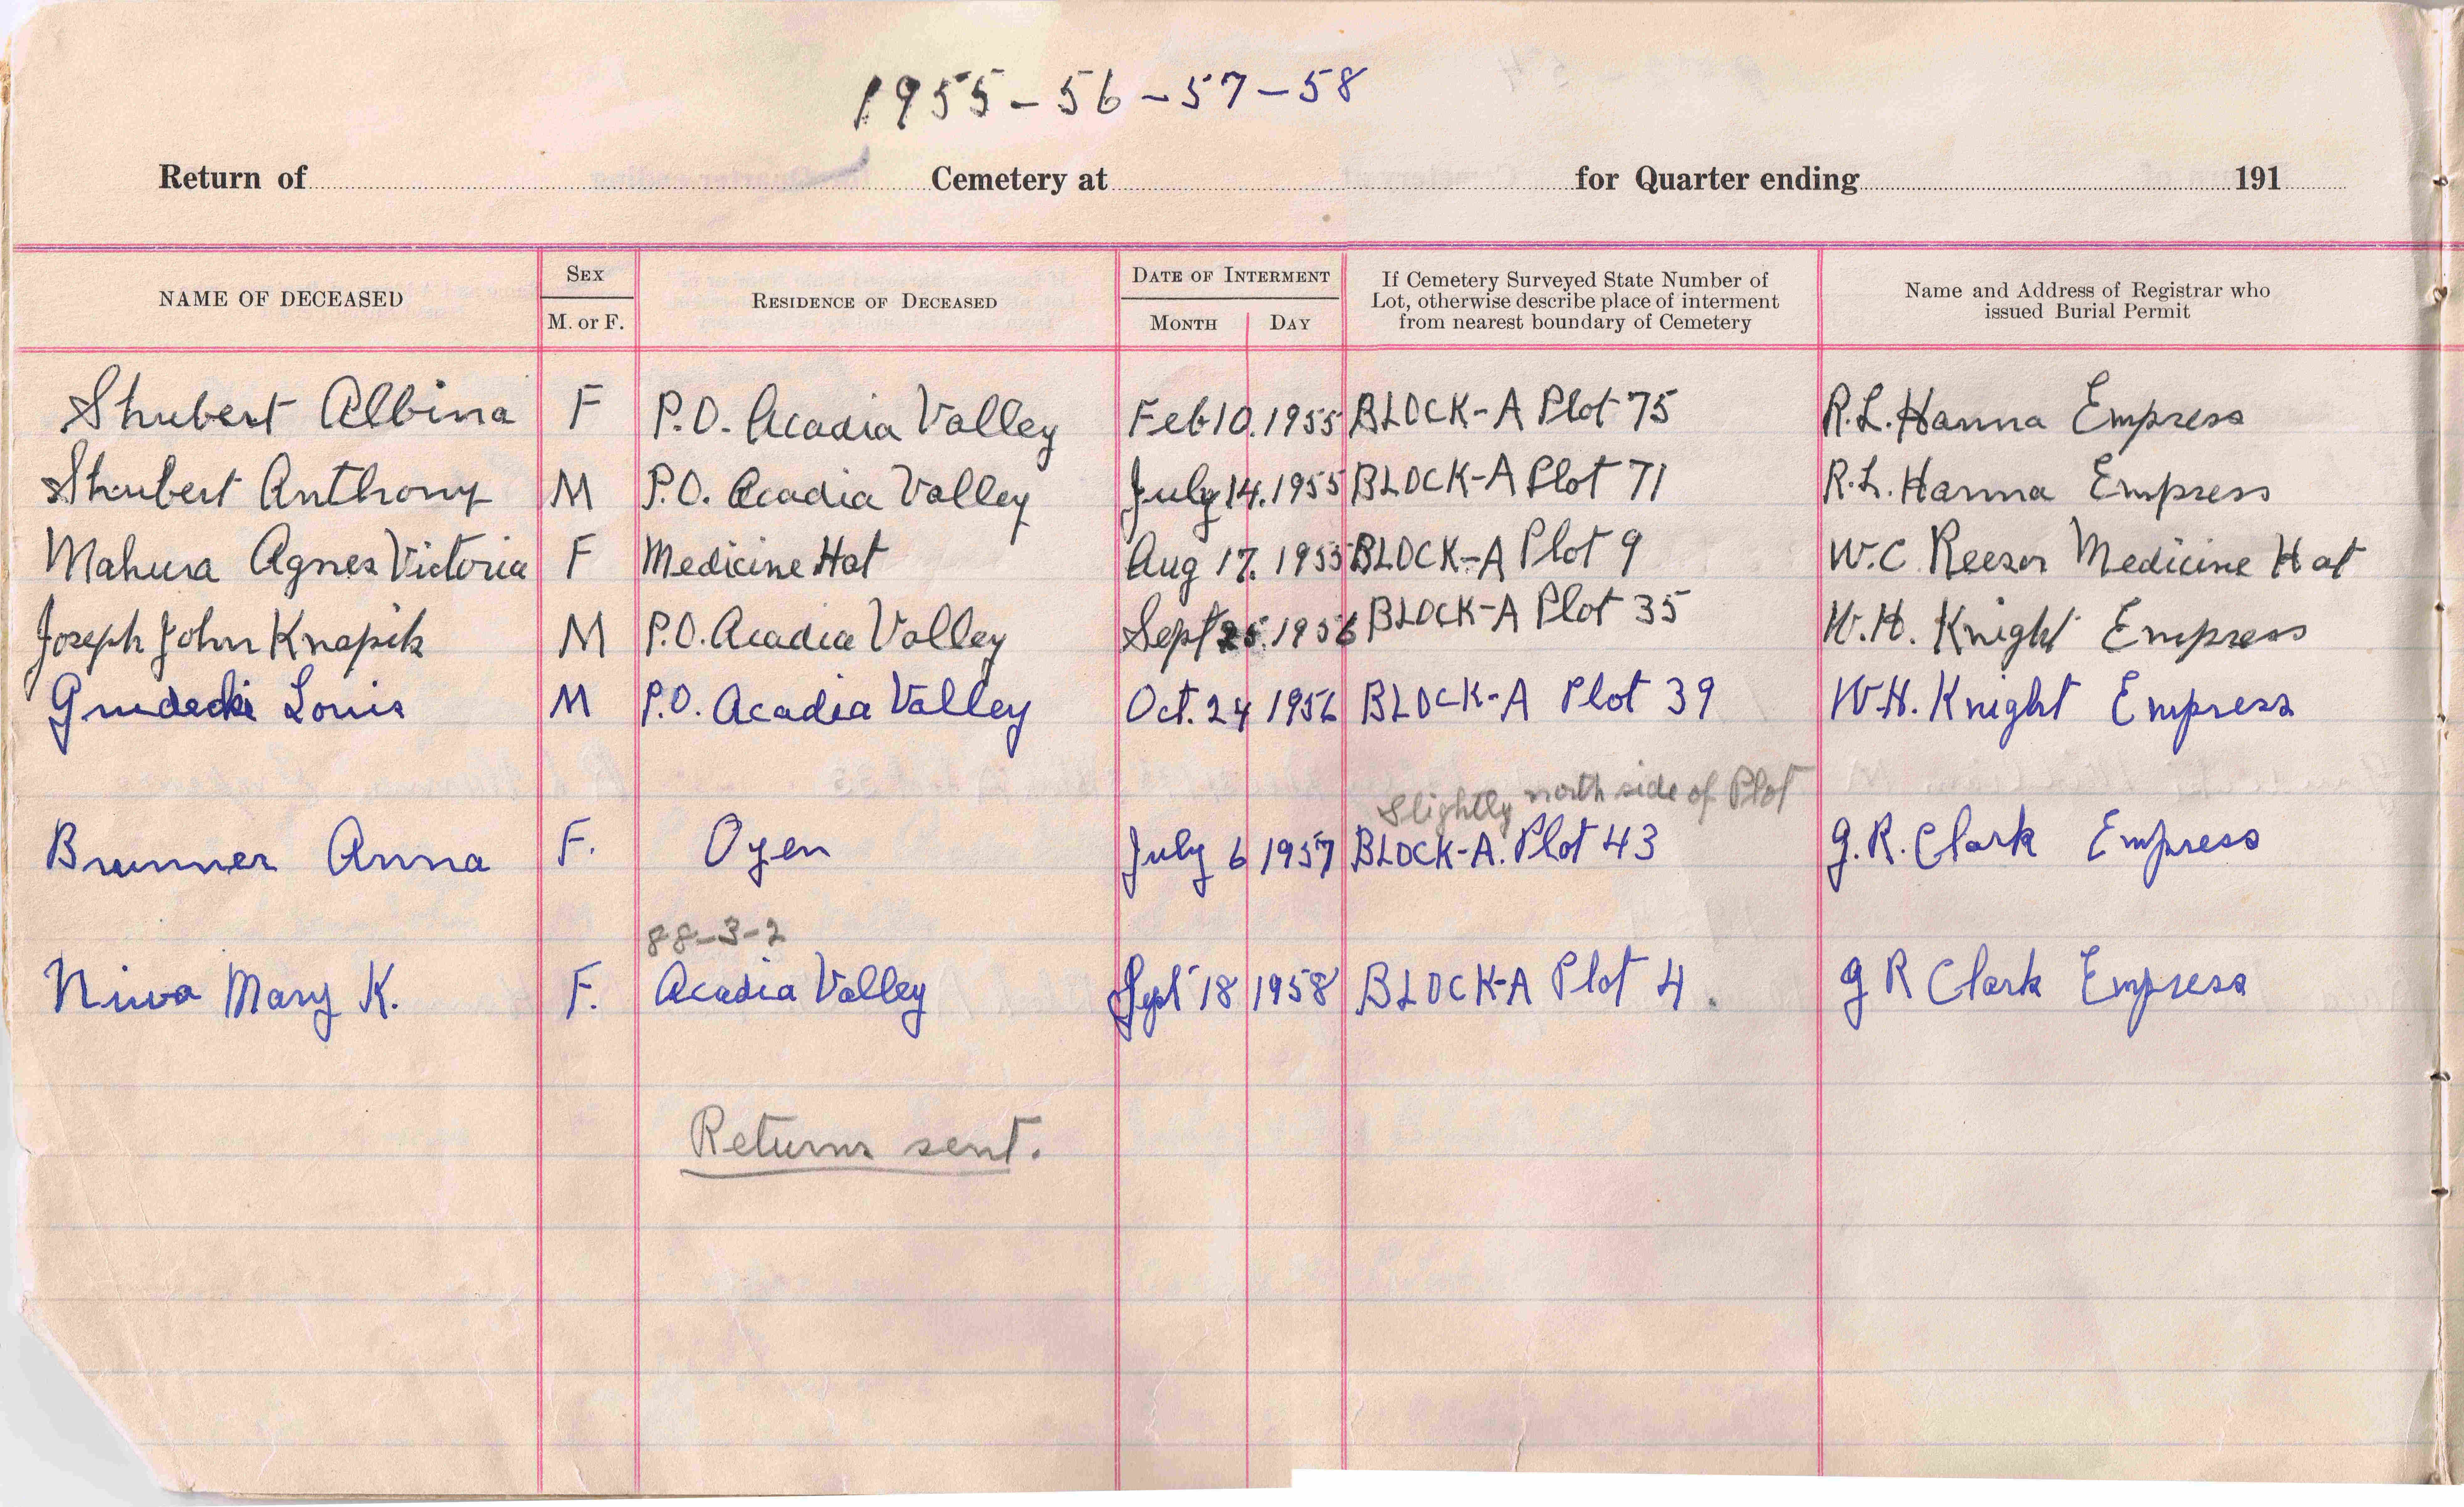 1955-56-57-58
Return of Cemetery at for Quarter ending 191
NAME OF DECEASED SEX M. or F. RESIDENCE OF DECEASED DATE OF INTERMENT MONTH DAY If Cemetery Surveyed State Number of Lot, otherwise describe place of interment from nearest boundary of Cemetery Name and Address of Registrar who issued Burial Permit
Shubert Albina F P.O. Acadia Valley Feb 10. 1955 BLOCK-A Plot 75 R.L. Hanna Empress
Shubert Anthony M P.O. Acadia Valley July 14. 1955 BLOCK-A Plot 71 R.L. Hanna Empress
Mahura Agnes Victoria F Medicine Hat Aug 17. 1955 BLOCK-A Plot 9 W.C Reesor Medicine Hat
Joseph John Knapik M P.O. Acadia Valley Sept 1956 BLOCK-A Plot 35 W.H. Knight Empress
Grudecki Louis M P.O. Acadia Valley Oct. 24 1956 BLOCK-A Plot 39 W.H. Knight Empress
Slightly north side of Plot
Brunner Anna F. Oyen July 6 1957 BLOCK-A. Plot 43 G.R. Clark Empress
88-3-2
Niwa Mary K. F. Acadia Valley Sept 18 1958 BLOCK-A Plot 4. G R Clark Empress
Returns sent.